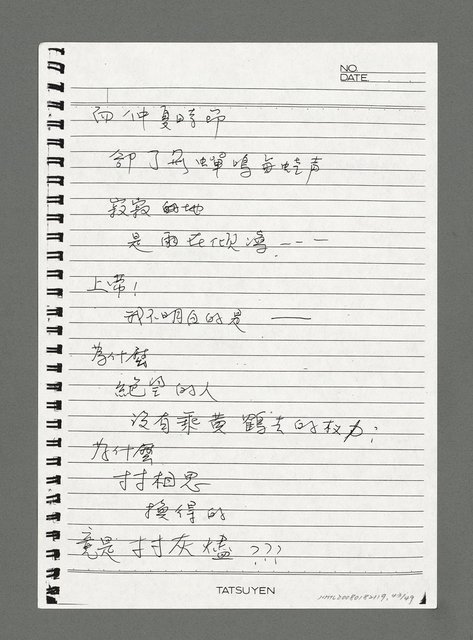 NO.
DATE
而仲夏時節
卻了無蟬鳴與蛙声
寂寂的地
是雨在傾瀉———
上帝！
我不明白的是——
為什麼
絕望的人
沒有乘黃鶴去的权力；
為什麼
寸寸相思
換得的
竟是寸寸灰燼???
TATSUYEN
NMTL20080182119, 49/49